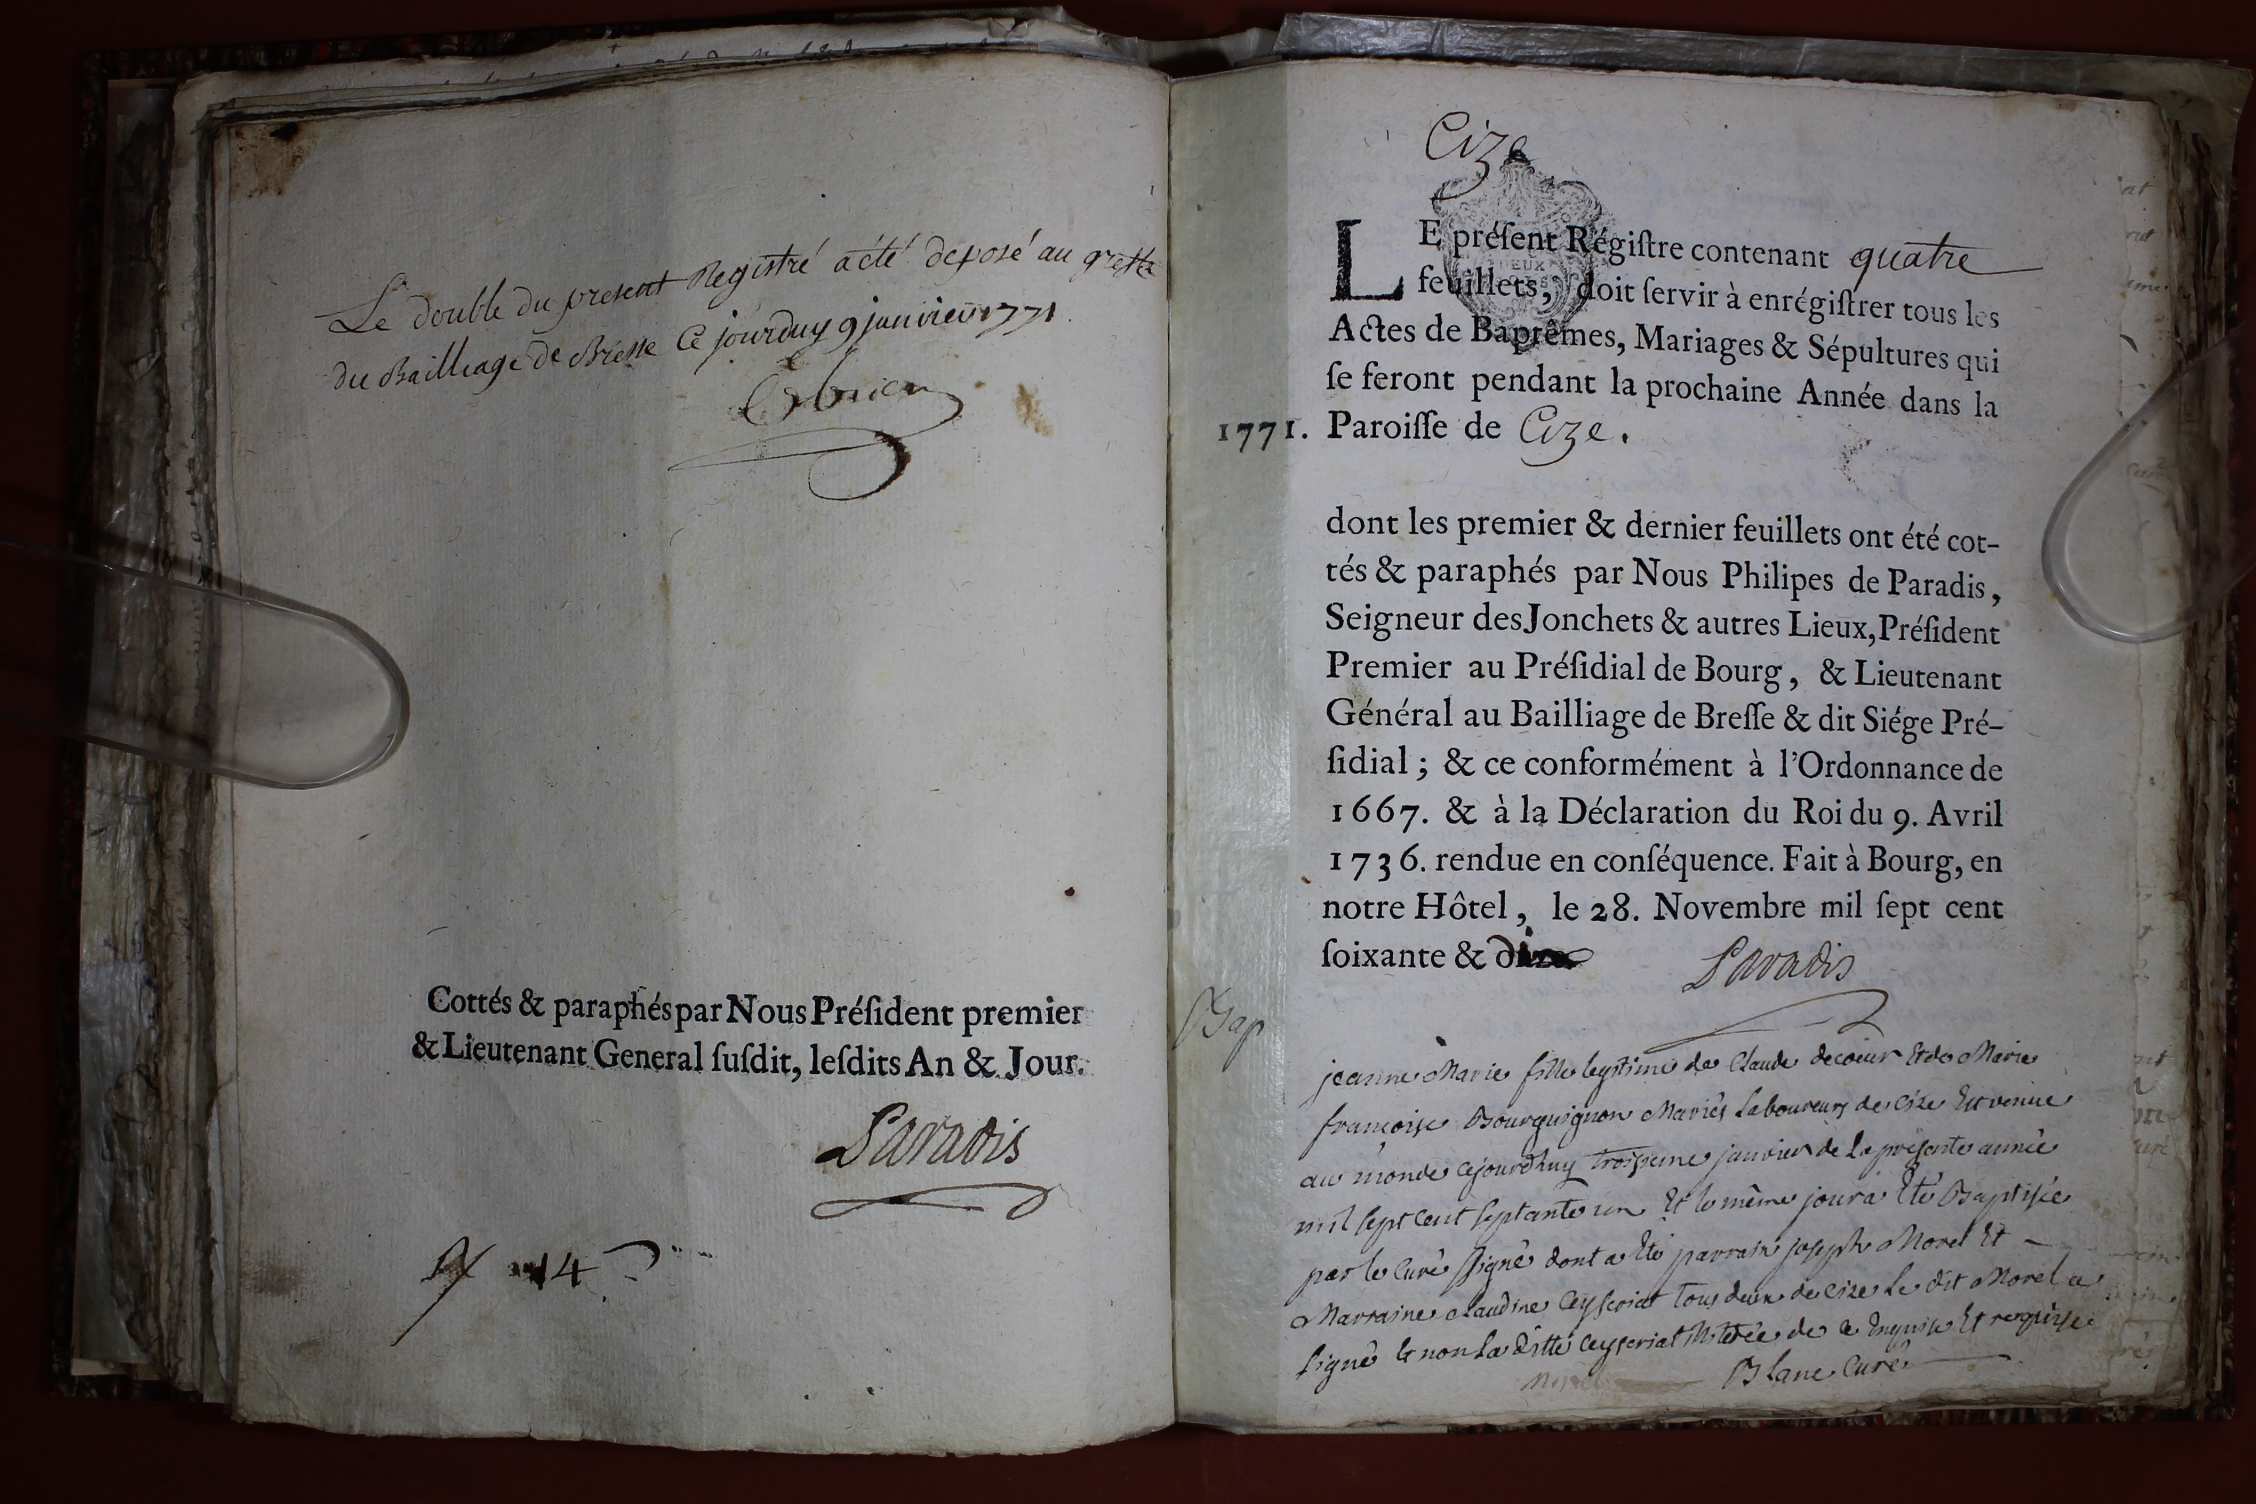 Le double du present Registré a été deposé au greffe
du Bailliage de Bresse Ce jourduy 9 janvier 1771
Cottés & paraphés par Nous Préſident premier
& Lieutenant General ſuſdit, leſdits An & Jour.
Paradis
14
Cize
LE préſent Régiſtre contenant quatre
feuillets, doit ſervir à enrégiſtrer tous les
Actes de Baptêmes, Mariages & Sépultures qui
ſe feront pendant la prochaine Année dans la
1771. Paroiſſe de Cize.
dont les premier & dernier feuillets ont été cot-
tés & paraphés par Nous Philipes de Paradis,
Seigneur des Jonchets & autres Lieux, Préſident
Premier au Préſidial de Bourg, & Lieutenant
Général au Bailliage de Breſſe & dit Siége Pré-
ſidial ; & ce conformément à l'Ordonnance de
1667. & à la Déclaration du Roi du 9. Avril
1736. rendue en conſéquence. Fait à Bourg, en
notre Hôtel, le 28. Novembre mil ſept cent
ſoixante & dix
Paradis
Bap
jeanne Marie fille legitime de Claude decoeur Et de Marie
françoise Bourguignon Mariés Laboureurs de Cize Est venue
au monde cejourdhuy troisieme janvier de la présente année
mil sept cent septante un Et le même jour a Eté Baptisée
par le Curé signé dont a Eté parrain joseph Morel Et
Marraine claudine Ceyseriat tous deux de Cize Le dit Morel a
signé & non La ditte Ceyseriat de ce Enquise Et requise
Morel Blanc Curé